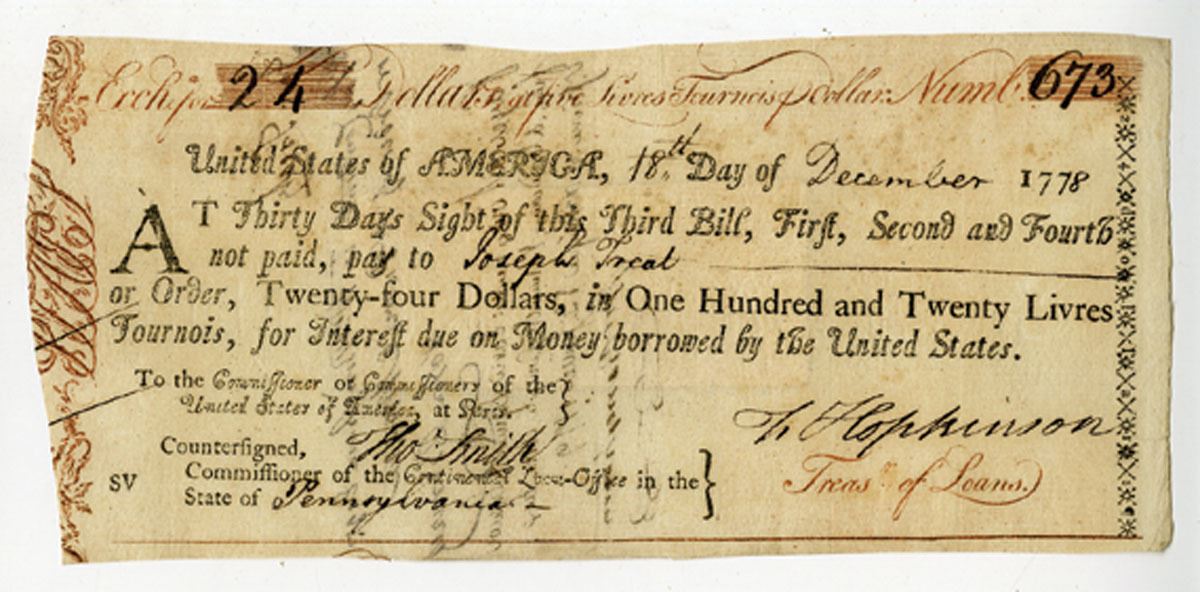 Exch. for 24 Dollars, at five Livres Tournois p Dollar. Numb. 673
United States of AMERICA, 18th Day of December 1778
AT Thirty Days Sight of this Third Bill, Firſt, Second and Fourth
not paid, pay to Joseph Treat
or Order, Twenty-four Dollars, in One Hundred and Twenty Livres
Tournois, for Intereſt due on Money borrowed by the United States.
To the Commiſſioner or Commiſſioners of the
United States of America, at Paris.
F Hopkinson
Treasr. of Loans.
Counterſigned, Tho. Smith
Commiſſioner of the Continental Loan-Office in the
SV
State of Pennsylvania